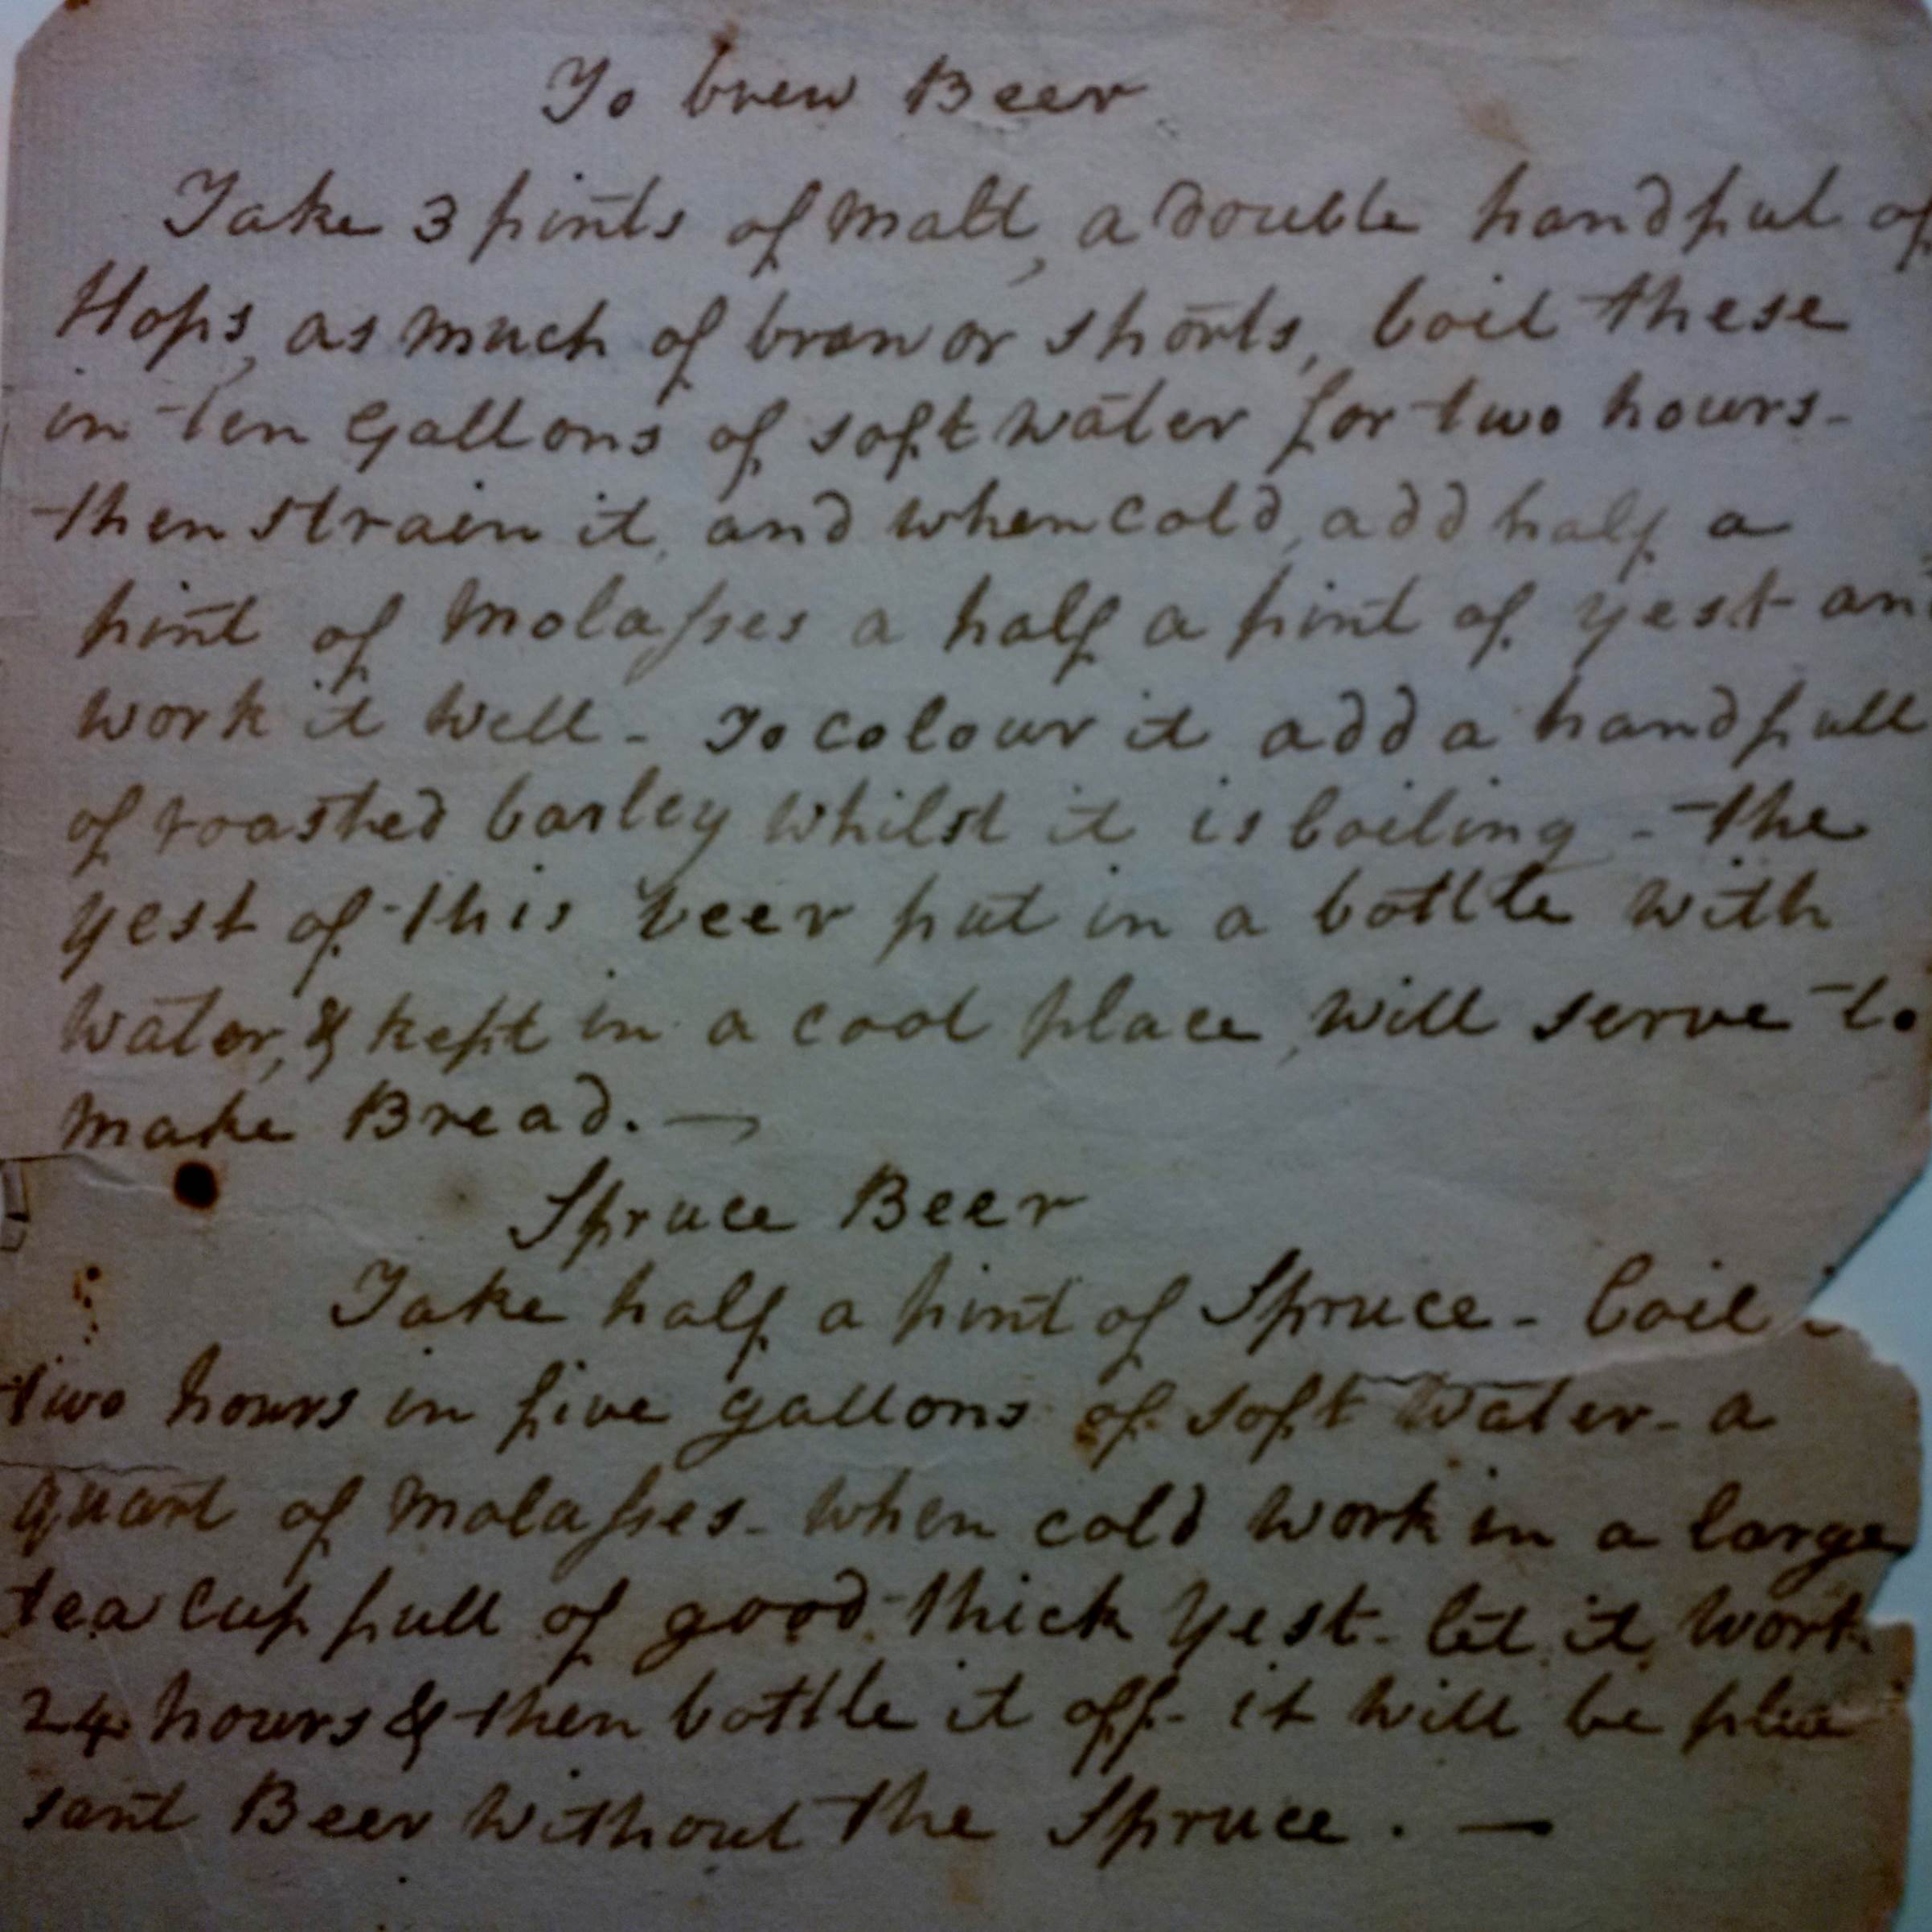 To brew Beer
Take 3 pints of Malt, a double handful of
Hops, as much of bran or shorts, boil these
in ten Gallons of soft water for two hours -
then strain it, and when cold, add half a
pint of Molasses a half a pint of yest an
work it well - To colour it add a handfull
of roasted barley whilst it is boiling - the
yest of this beer put in a bottle with
water, & kept in a cool place, will serve to
make Bread. —
Spruce Beer
Take half a pint of Spruce - boil i
two hours in five gallons of soft Water - a
quart of Molasses - when cold work in a large
tea cup full of good thick Yest - let it work
24 hours & then bottle it off - it will be plea
sant Beer without the Spruce. —